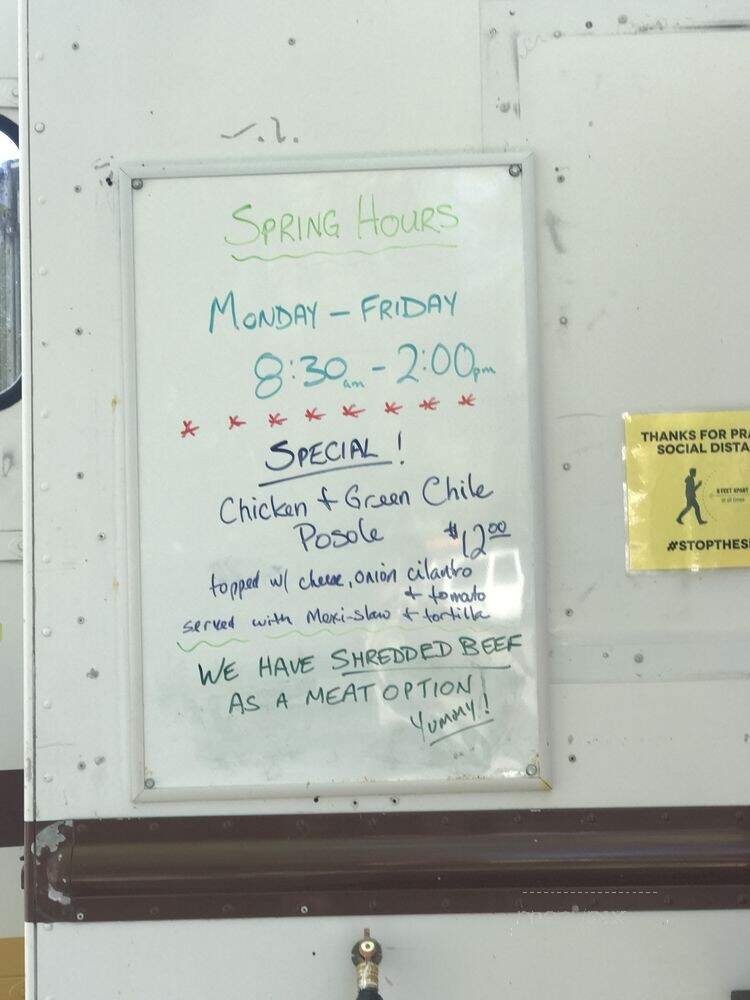 SPRING HOURS
MONDAY - FRIDAY
8:30am - 2:00pm
* * * * * * * *
SPECIAL!
Chicken + Green Chile
Posole $12.00
topped w/ cheese, onion cilantro
+ tomato
served with Mexi-slaw + tortilla
WE HAVE SHREDDED BEEF
AS A MEAT OPTION
Yummy!
THANKS FOR PRA
SOCIAL DISTA
6 FEET APART
at all times
#STOPTHES